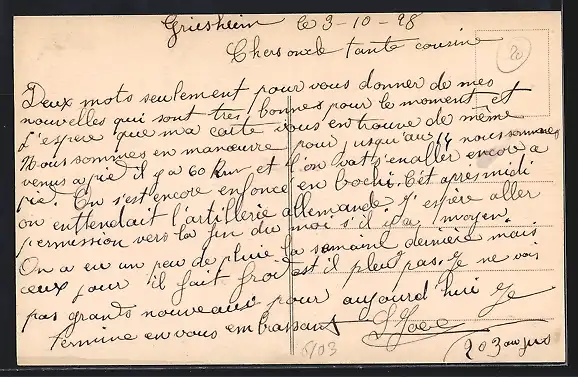 Griesheim le 3-10-28
Chers oncle tante cousin
20
Deux mots seulement pour vous donner de mes
nouvelles qui sont très bonnes pour le moment et
J'espère que ma carte vous en trouve de même
Nous sommes en manœuvre pour jusqu'au 14 nous sommes
venus a pie il y a 60 km et l'on vat s'en aller encor a
pie. On s'est encore enfoncé en bochi. Cet apres midi
on enttendait l'artillerie allemande J'espère aller
permission vers la fin du moi s'il i a moyen.
On a eu un peu de pluie la semaine dernière mais
ceux jour il fait froit et il pleu pas. Je ne vois
pas grands nouveaux pour aujourd hui Je
termine en vous embrassant
203
6/03